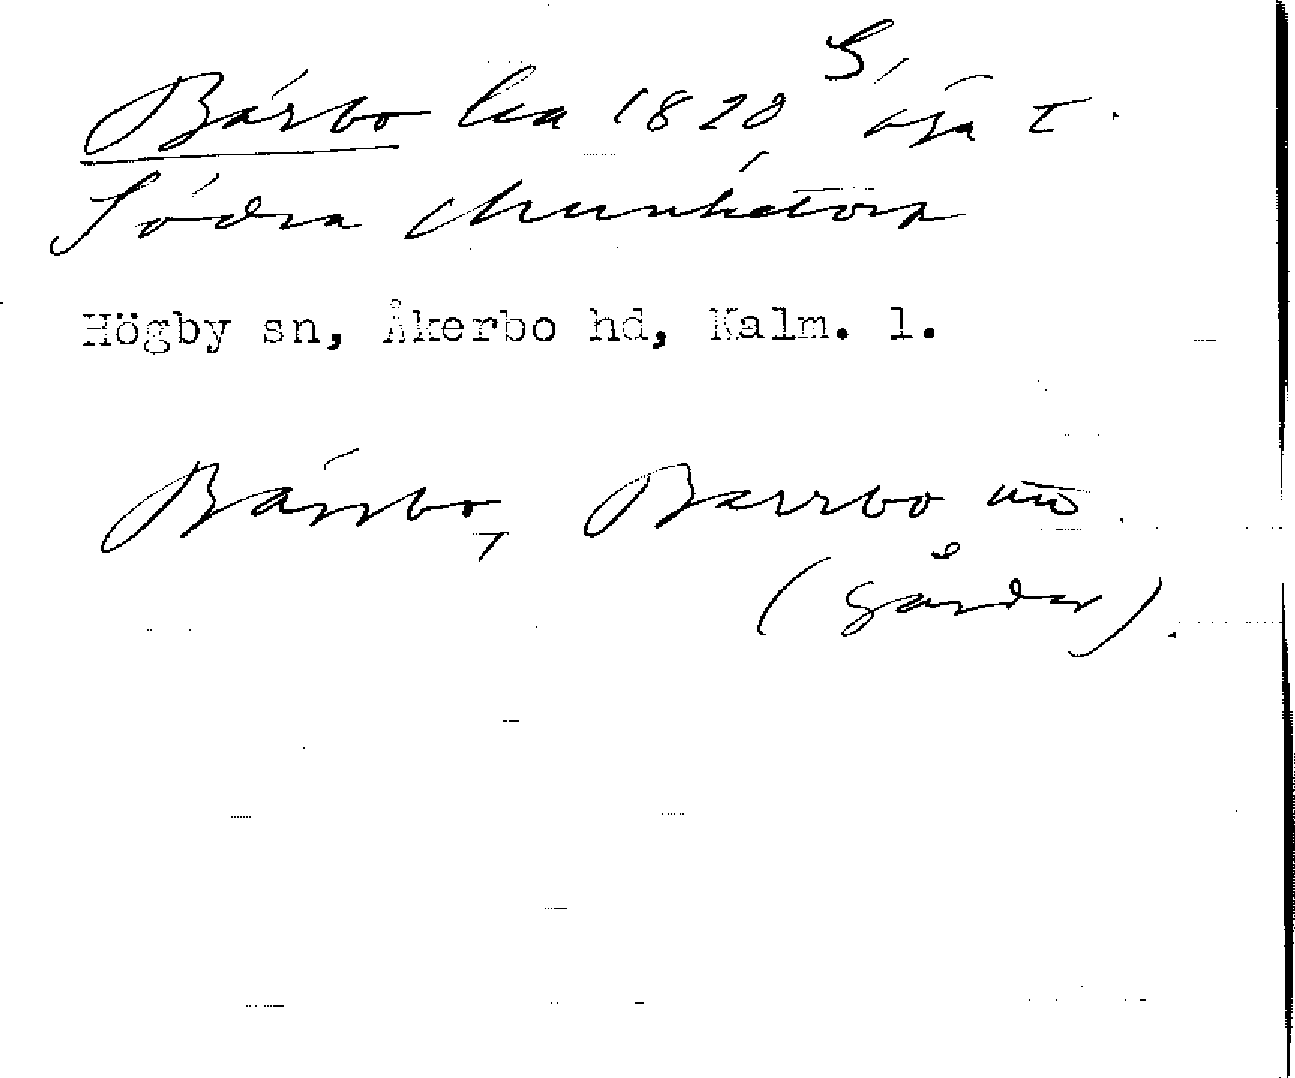 Bärbo ca 1820 S,
Södra Munketorp
Högby sn, Åkerbo hd, Kalm. l.
Bärrbo, Barrbo
(gårdar).